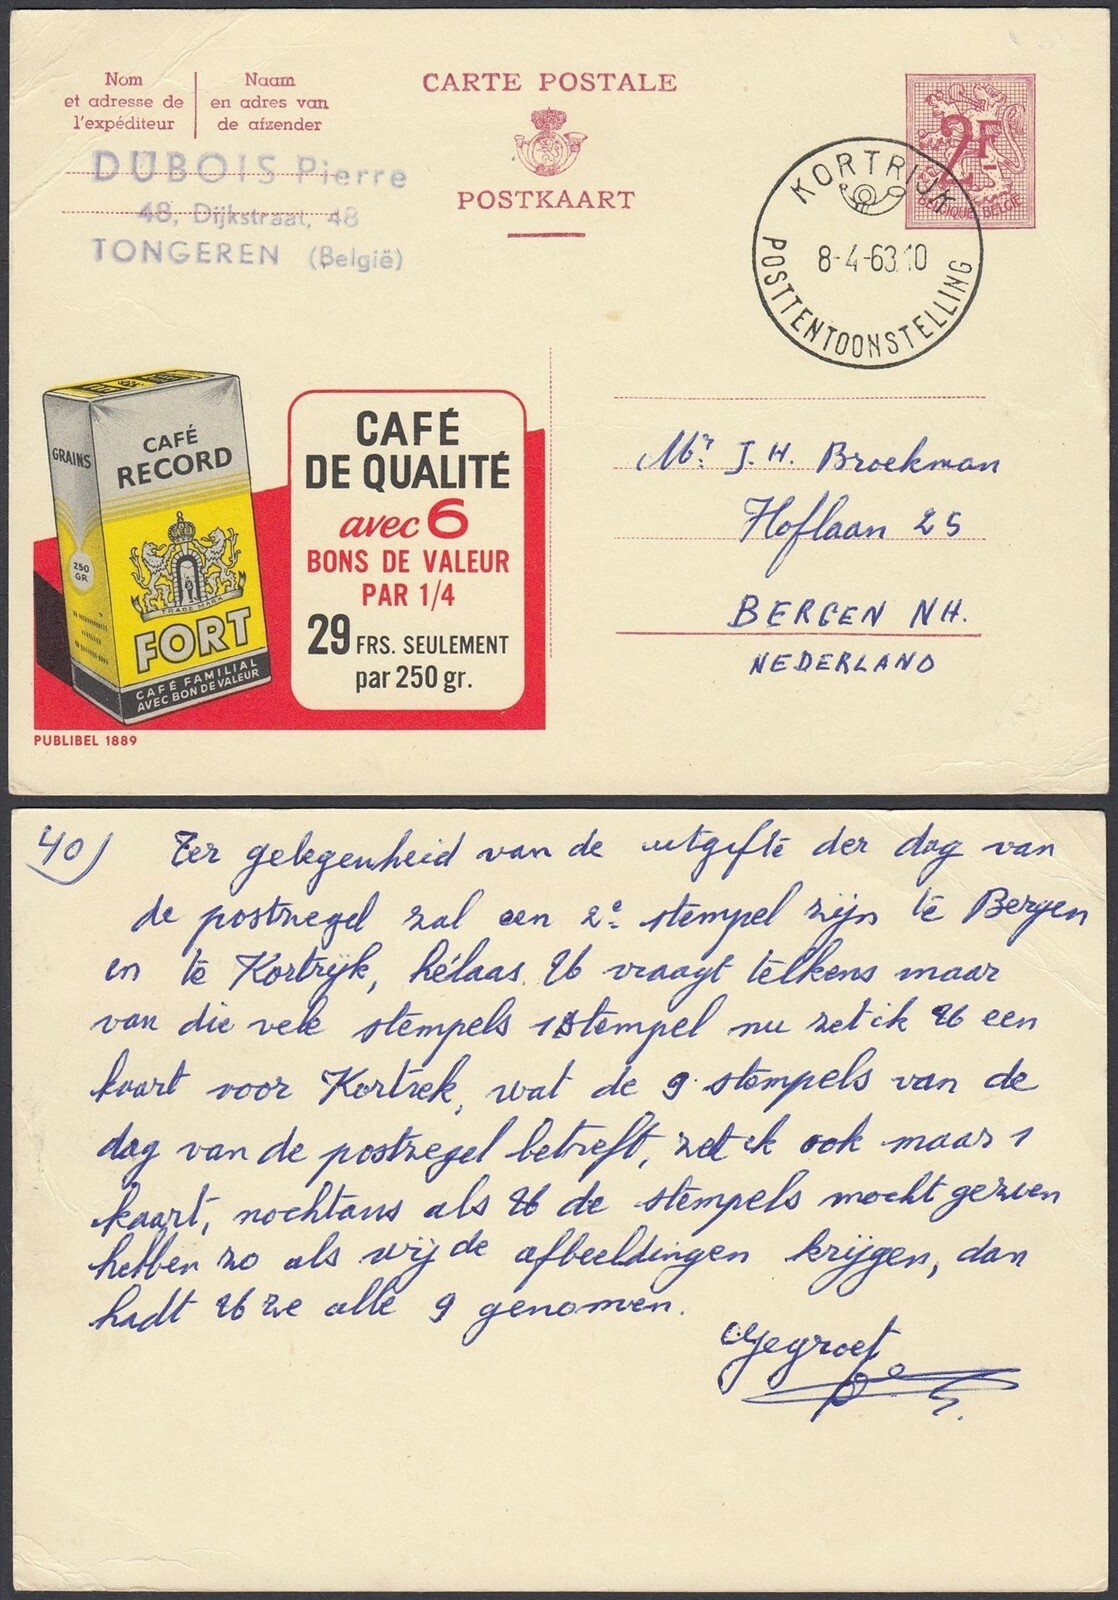 Nom
et adresse de
l'expéditeur
Naam
en adres van
de afzender
CARTE POSTALE
POSTKAART
2F
BELGIQUE-BELGIË
KORTRIJK
8-4-63.10
POSTTENTOONSTELLING
DUBOIS Pierre
48, Dijkstraat, 48
TONGEREN (België)
GRAINS
250
GR
CAFÉ
RECORD
TRADE MARK
FORT
CAFÉ FAMILIAL
AVEC BON DE VALEUR
CAFÉ
DE QUALITÉ
avec 6
BONS DE VALEUR
PAR 1/4
29 FRS. SEULEMENT
par 250 gr.
PUBLIBEL 1889
Mr. J. H. Broekman
Hoflaan 25
BERGEN NH.
NEDERLAND
40) Ter gelegenheid van de uitgifte der dag van
de postzegel zal een 2e stempel zijn te Bergen
en te Kortrijk, hélaas U vraagt telkens maar
van die vele stempels 1 stempel nu zet ik U een
kaart voor Kortrek, wat de 9 stempels van de
dag van de postzegel betreft, zet ik ook maar 1
kaart, nochtans als U de stempels mocht gezien
hebben zo als wij de afbeeldingen krijgen, dan
hadt U ze alle 9 genomen.
Gegroet